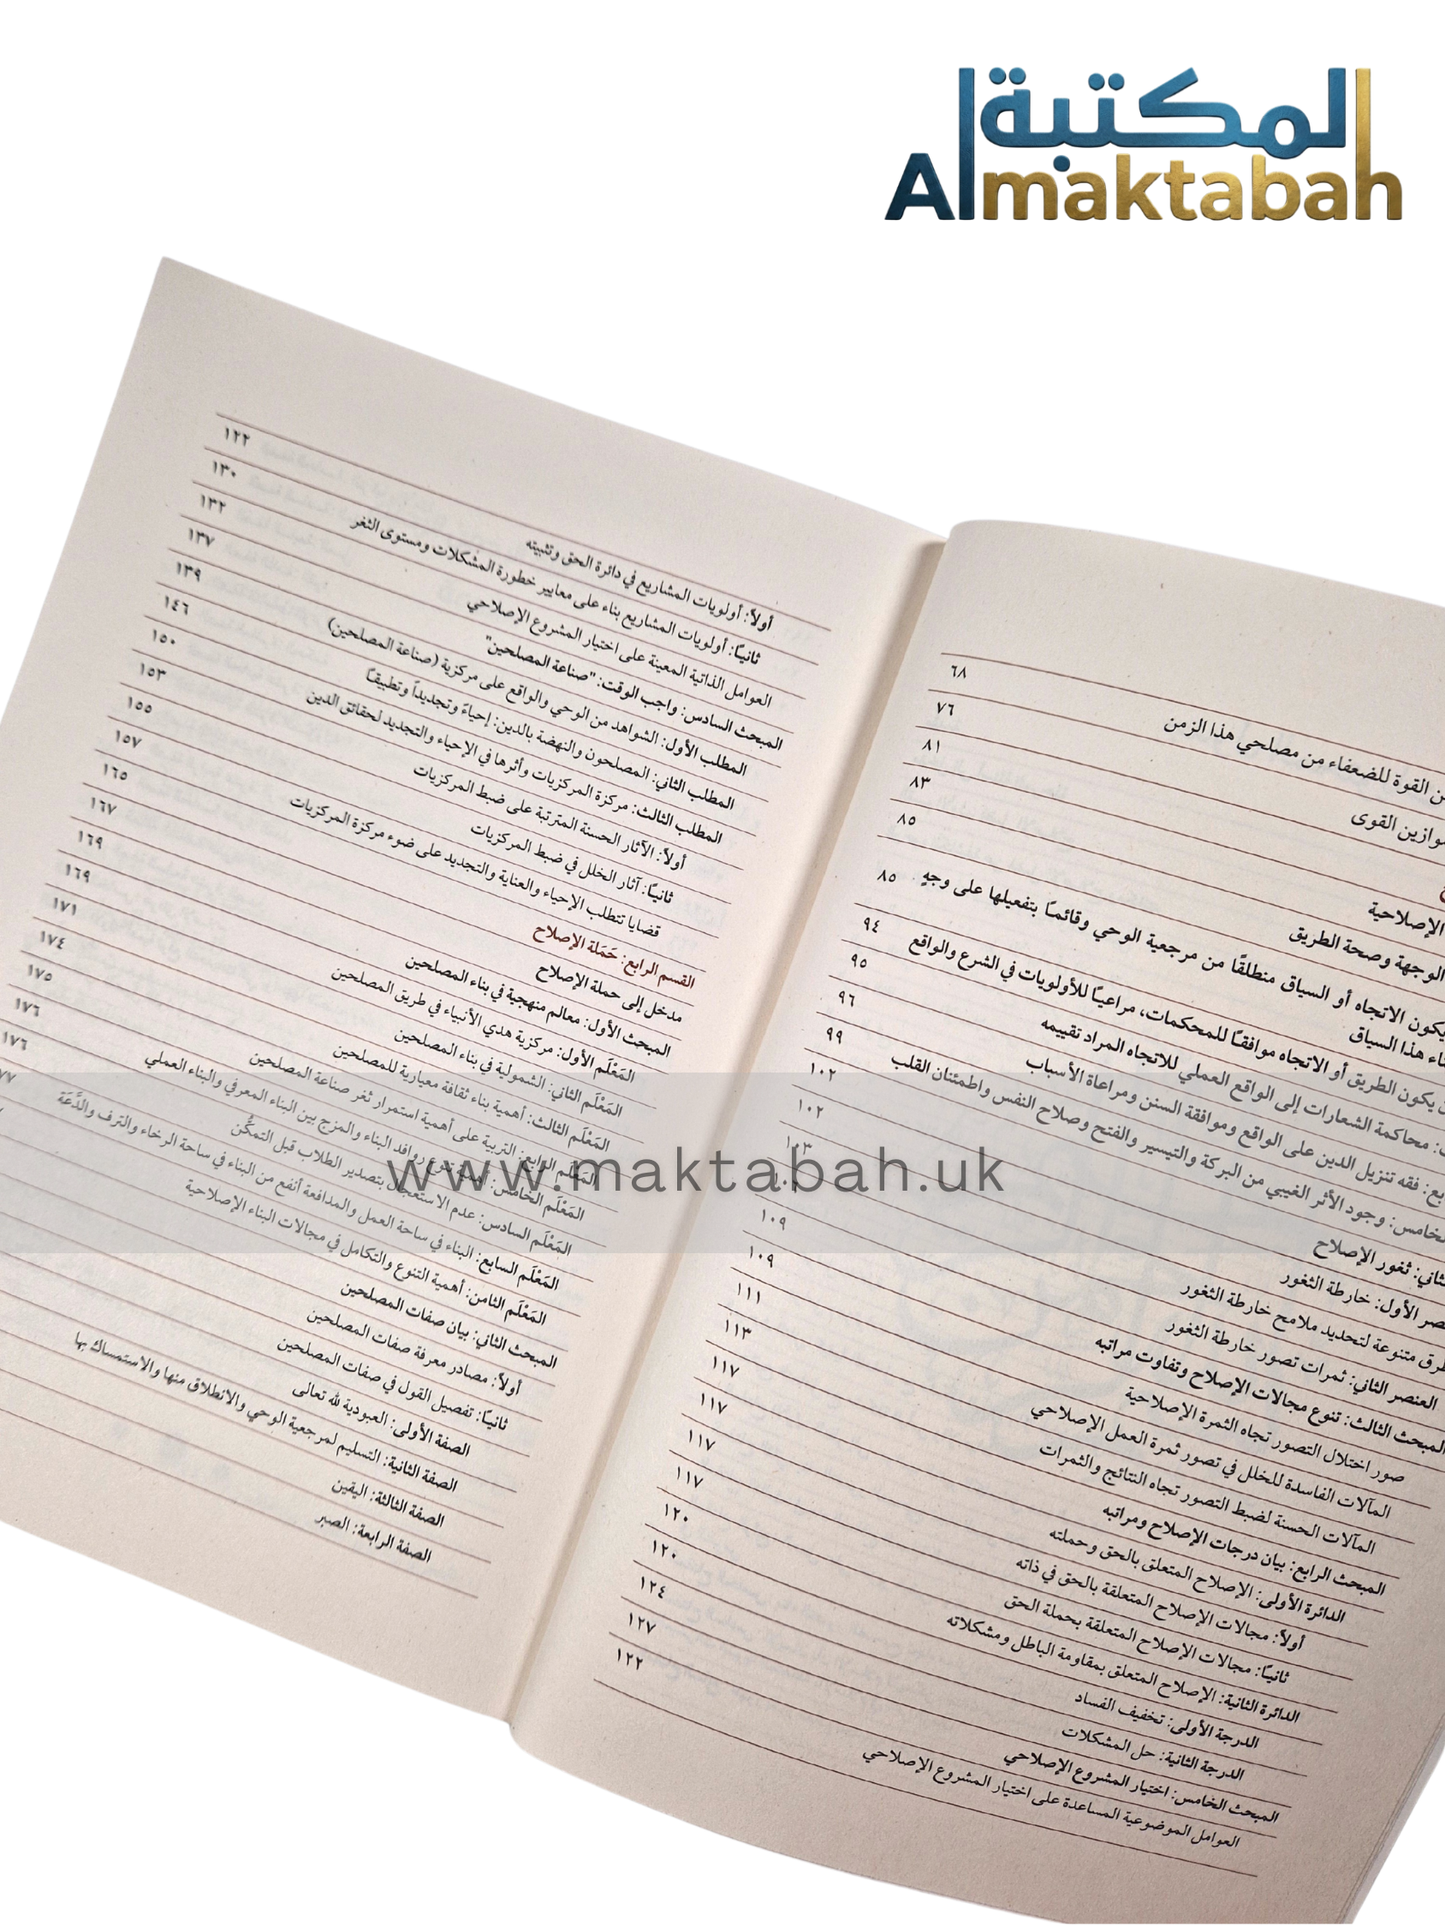 المكتبة
Almaktabah
القوة للضعفاء من مصلحي هذا الزمن ٦٨
موازين القوى ٧٦
٨١
الإصلاحية ٨٣
الوجهة وصحة الطريق ٨٥
يكون الاتجاه أو السياق منطلقًا من مرجعية الوحي وقائمًا بتفعيلها على وجهٍ
هذا السياق ٨٥
يكون الطريق أو الاتجاه موافقًا للمحكمات، مراعيًا للأولويات في الشرع والواقع ٩٤
محاكمة الشعارات إلى الواقع العملي للاتجاه المراد تقييمه ٩٥
فقه تنزيل الدين على الواقع وموافقة السنن ومراعاة الأسباب ٩٦
الخامس: وجود الأثر الغيبي من البركة والتيسير والفتح وصلاح النفس واطمئنان القلب ٩٩
الثاني: ثغور الإصلاح ١٠٢
الأول: خارطة الثغور ١٠٢
طرق متنوعة لتحديد ملامح خارطة الثغور ١٠٣
العنصر الثاني: ثمرات تصور خارطة الثغور
المبحث الثالث: تنوع مجالات الإصلاح وتفاوت مراتبه ١٠٩
صور اختلال التصور تجاه الثمرة الإصلاحية ١٠٩
المآلات الفاسدة للخلل في تصور ثمرة العمل الإصلاحي ١١١
المآلات الحسنة لضبط التصور تجاه النتائج والثمرات ١١٣
المبحث الرابع: بيان درجات الإصلاح ومراتبه ١١٧
الدائرة الأولى: الإصلاح المتعلق بالحق وحملته ١١٧
أولاً: مجالات الإصلاح المتعلقة بالحق في ذاته ١١٧
ثانيًا: مجالات الإصلاح المتعلقة بحملة الحق ١١٧
الدائرة الثانية: الإصلاح المتعلق بمقاومة الباطل ومشكلاته ١٢٠
الدرجة الأولى: تخفيف الفساد ١٢٠
الدرجة الثانية: حل المشكلات ١٢٤
المبحث الخامس: اختيار المشروع الإصلاحي ١٢٧
العوامل الموضوعية المساعدة على اختيار المشروع الإصلاحي ١٢٢
أولاً: أولويات المشاريع في دائرة الحق وتثبيته ١٢٢
ثانيًا: أولويات المشاريع بناء على معايير خطورة المشكلات ومستوى الثغر ١٣٠
العوامل الذاتية المعينة على اختيار المشروع الإصلاحي ١٣٢
المبحث السادس: واجب الوقت: "صناعة المصلحين" ١٣٧
المطلب الأول: الشواهد من الوحي والواقع على مركزية (صناعة المصلحين) ١٣٩
المطلب الثاني: المصلحون والنهضة بالدين: إحياءً وتجديداً وتطبيقًا ١٤٦
المطلب الثالث: مركزة المركزيات وأثرها في الإحياء والتجديد لحقائق الدين ١٥٠
أولاً: الآثار الحسنة المترتبة على ضبط المركزيات ١٥٣
ثانيًا: آثار الخلل في ضبط المركزيات ١٥٥
قضايا تتطلب الإحياء والعناية والتجديد على ضوء مركزة المركزيات ١٥٧
القسم الرابع: حَمَلة الإصلاح ١٦٥
مدخل إلى حملة الإصلاح ١٦٧
المبحث الأول: معالم منهجية في بناء المصلحين ١٦٩
المَعْلَم الأول: مركزية هدي الأنبياء في طريق المصلحين ١٦٩
المَعْلَم الثاني: الشمولية في بناء المصلحين ١٧١
المَعْلَم الثالث: أهمية بناء ثقافة معيارية للمصلحين ١٧٤
المَعْلَم الرابع: التربية على أهمية استمرار ثغر صناعة المصلحين ١٧٥
المَعْلَم الخامس: تنوع روافد البناء والمزج بين البناء المعرفي والبناء العملي ١٧٦
المَعْلَم السادس: عدم الاستعجال بتصدير الطلاب قبل التمكُّن ١٧٦
المَعْلَم السابع: البناء في ساحة العمل والمدافعة أنفع من البناء في ساحة الرخاء والترف والدَّعَة ٧٧
المَعْلَم الثامن: أهمية التنوع والتكامل في مجالات البناء الإصلاحية
المبحث الثاني: بيان صفات المصلحين
أولاً: مصادر معرفة صفات المصلحين
ثانيًا: تفصيل القول في صفات المصلحين
الصفة الأولى: العبودية لله تعالى
الصفة الثانية: التسليم لمرجعية الوحي والانطلاق منها والاستمساك بها
الصفة الثالثة: اليقين
الصفة الرابعة: الصبر
www.maktabah.uk